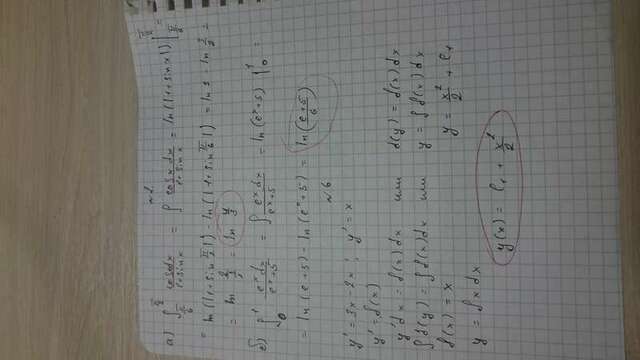 №2
а) ∫_{π/6}^{π/2} cosxdx/(1+sinx) = ∫ cosx dx/(1+sinx) = ln(|1+sinx|) |_{π/6}^{π/2} =
= ln(|1+sin π/2|) - ln(|1+sin π/6|) = ln2 - ln 3/2 =
= ln 4/3
б) ∫_0^1 e^x dx/(e^x+5) = ∫ e^x dx/(e^x+5) = ln(e^x+5) |_0^1 =
= ln(e+5) - ln(e^0+5) = ln((e+5)/6)
№6
y' = 3x - 2x ; y' = x
y' = f(x)
y'dx = f(x)dx или d(y) = f(x)dx
∫d(y) = ∫f(x)dx или y = ∫f(x)dx
f(x) = x y = x²/2 + C₁
y = ∫x dx
y(x) = C₁ + x²/2